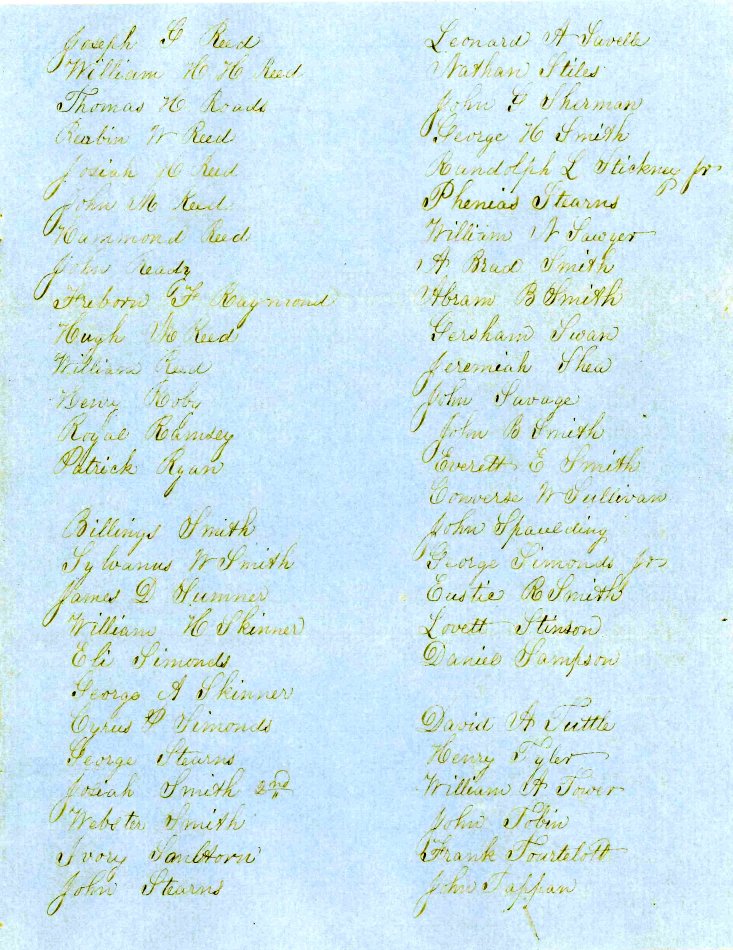 Joseph F Reed
William H H Reed
Thomas H Roads
Reabin W Reed
Josiah H Reed
John M Reed
Hammond Reed
John Ready
Freborn F Raymond
Hugh M Reed
William Reed
Henry Roby
Royal Ramsey
Patrick Ryan
Billings Smith
Sylvanus W Smith
James D Sumner
William H Skinner
Eli Simonds
George A Skinner
Cyrus P Simonds
George Stearns
Josiah Smith 2nd
Webster Smith
Ivory Sanborn
John Stearns
Leonard A Savelle
Nathan Stiles
John F Sherman
George H Smith
Randolph L Stickney Jr
Phenias Stearns
William N Sawyer
A Brad Smith
Abram B Smith
Gersham Swan
Jeremiah Shea
John Savage
John B Smith
Everett E Smith
Converse W Sullivan
John Spaulding
George Simonds Jr
Eustic R Smith
Lovett Stinson
Daniel Sampson
David A Tuttle
Henry Tyler
William A Tower
John Tobin
Frank Tourtelott
John Tappan